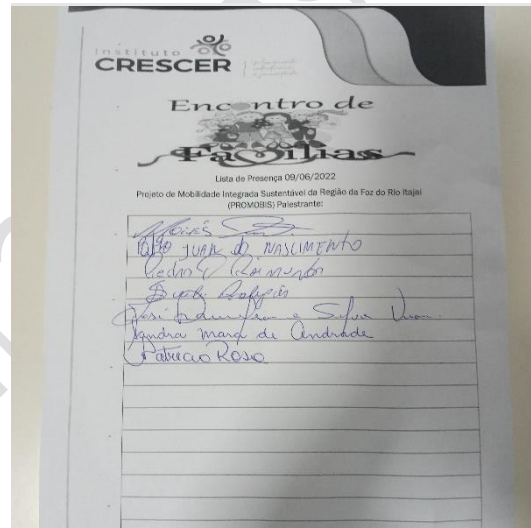 Instituto
CRESCER
Encontro de
Famílias
Lista de Presença 09/06/2022
Projeto de Mobilidade Integrada Sustentável da Região da Foz do Rio Itajaí
(PROMOBIS) Palestrante:
JUAN do NASCIMENTO
Pedro Raimundo
José Silva
Sandra Mara de Andrade
Patricia Rosa